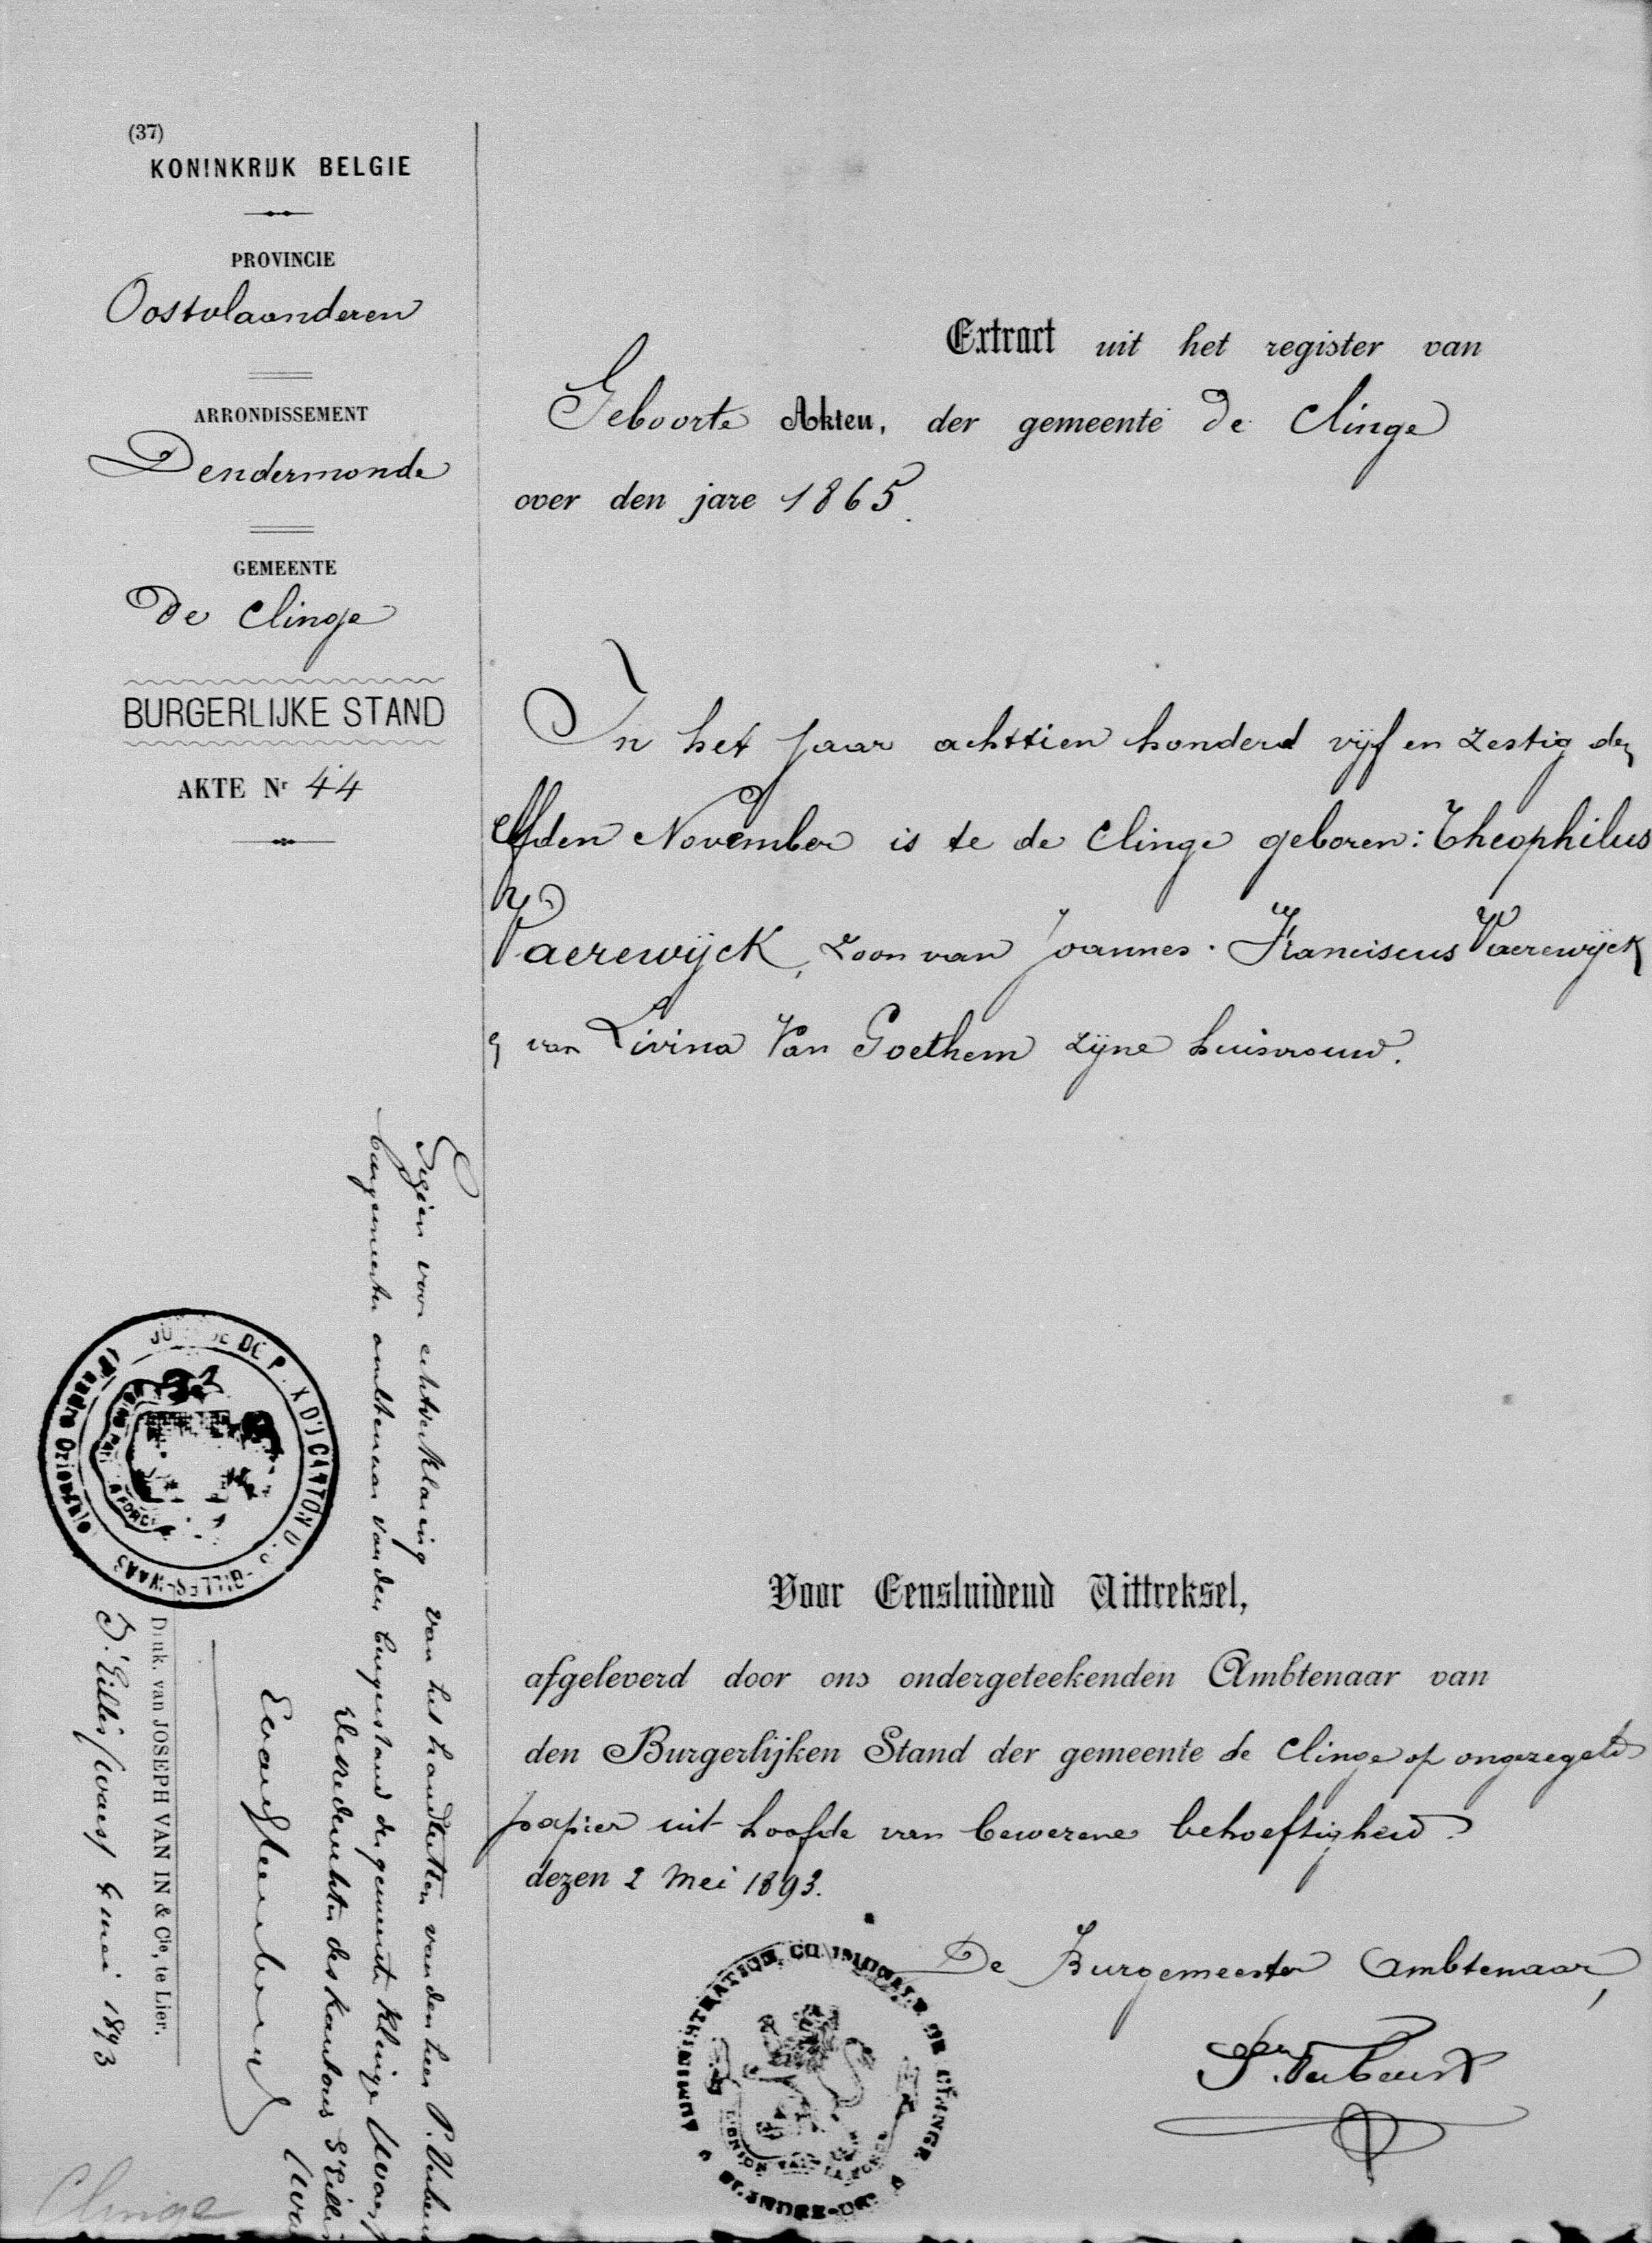 (37)
KONINKRIJK BELGIE
PROVINCIE
Oostvlaanderen
ARRONDISSEMENT
Dendermonde
GEMEENTE
De Clinge
BURGERLIJKE STAND
AKTE Nr 44
Extract uit het register van
Geboorte Akten, der gemeente De Clinge
over den jare 1865.
In het jaar achttien honderd vijf en zestig den
elfden November is te de Clinge geboren: Theophilus
Vaerewijck, zoon van Joannes Franciscus Vaerewijck
en van Livina Van Goethem zijne huisvrouw.
Voor Eensluidend Uittreksel,
afgeleverd door ons ondergeteekenden Ambtenaar van
den Burgerlijken Stand der gemeente de Clinge op ongezegeld
papier uit hoofde van bewezene behoeftigheid.
dezen 2 Mei 1893.
De Burgemeester Ambtenaar,
ADMINISTRATION COMMUNALE DE CLINGE
L'UNION FAIT LA FORCE
Gezien voor echtverklaring van het handteeken van den heer P.
burgemeester ambtenaar van den burgerstand der gemeente Klinge Waas
De vrederechter des kantons S'Gillis
S'Gillis Waas 4 mei 1893
Druk. van JOSEPH VAN IN & Cie, te Lier.
CANTON
GILLES-WAAS
Flandre Orientale
Clinge